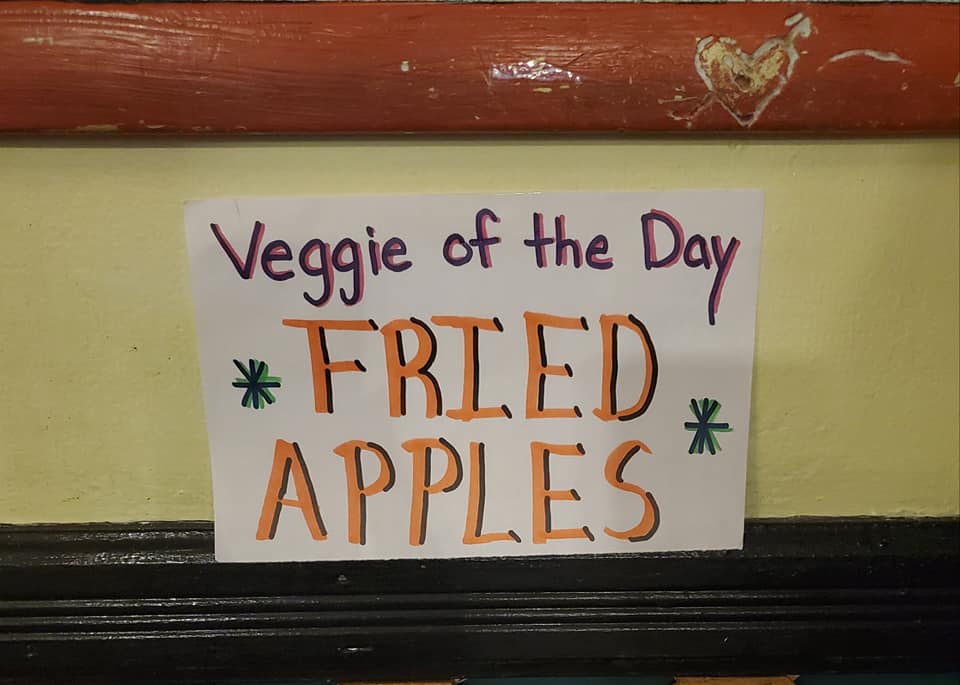 Veggie of the Day
* FRIED
APPLES *